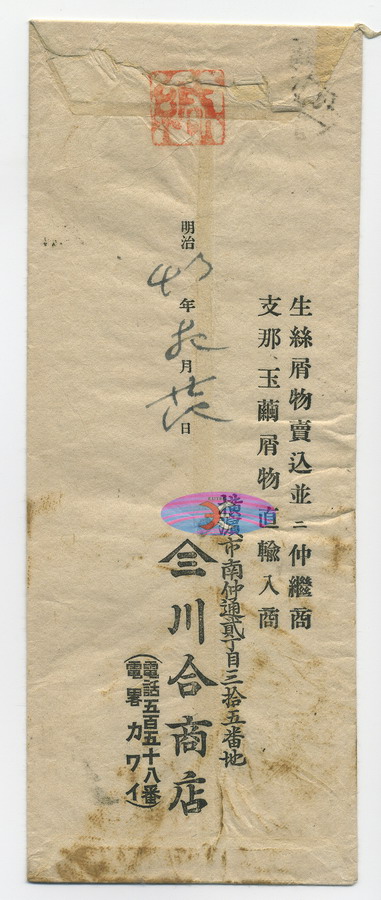 生絲屑物賣込並ニ仲繼商
支那、玉繭屑物直輸入商
横濱市南仲通貳丁目三拾五番地
川合商店
(電話五百五十八番)
(電畧カワイ)
明治 年 月 日